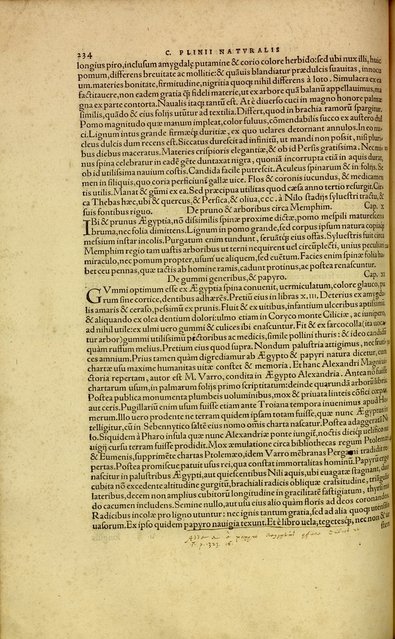 234 C. PLINII NATVRALIS
longius piro, inclusum amygdalę putamine & corio colore herbido: sed ubi nux illi, huic
pomum, differens breuitate ac mollitie: & quãuis blandiatur prædulcis suauitas, innocu
um. materies bonitate, firmitudine, nigritia quoqȝ nihil differens à loto. Simulacra ex ea
factitauere, non eadem gratia qȝ fideli materie, ut ex arbore quã balanũ appellauimus, ma
gna ex parte contorta. Naualis itaqȝ tantũ est. At è diuerso cuci in magno honore palmæ
similis, quãdo & eius folijs utũtur ad textilia. Differt, quod in brachia ramorũ spargitur.
Pomo magnitudo quæ manum impleat, color fuluus, cõmendabilis succo ex austero dul
ci. Lignum intus grande firmæqȝ duritiæ, ex quo uelares detornant annulos. In eo nu-
cleus dulcis dum recens est. Siccatus durescit ad infinitũ, ut mandi non possit, nisi pluri
bus diebus maceratus. Materies crispioris elegantiæ, & ob id Persis gratissima. Nec mi
nus spina celebratur in eadẽ gẽte duntaxat nigra, quoniã incorrupta etiã in aquis durat,
ob id utilissima nauium costis. Candida facile putrescit. Aculeus spinarum & in folijs, se
men in siliquis, quo coria perficiunt gallæ uice. Flos & coronis iucundus, & medicamen
tis utilis. Manat & gũmi ex ea. Sed præcipua utilitas quod cæsa anno tertio resurgit. Cir
ca Thebas hæc, ubi & quercus, & Persica, & oliua, ccc. à Nilo stadijs syluestri tractu, &
suis fontibus riguo. De pruno & arboribus circa Memphim. Cap. X
IBi & prunus Ægyptia, nõ dissimilis spinæ proxime dictæ, pomo mespili maturescens
bruma, nec folia dimittens. Lignum in pomo grande, sed corpus ipsum natura copiaqȝ
messium instar incolis. Purgatum enim tundunt, seruantqȝ eius offas. Syluestris fuit circa
Memphim regio tam uastis arboribus ut terni nequirent uel circũplecti, unius peculiari
miraculo, nec pomum propter, usum ue aliquem, sed euẽtum. Facies enim spinæ folia ha
bet ceu pennas, quæ tactis ab homine ramis, cadunt protinus, ac postea renascuntur.
De gummi generibus, & papyro. Cap. XI
GVmmi optimum esse ex Ægyptia spina conuenit, uermiculatum, colore glauco, pu
rum sine cortice, dentibus adhærẽs. Pretiũ eius in libras X. III. Deterius ex amygda
lis amaris & ceraso, pessimũ ex prunis. Fluit & ex uitibus, infantium ulceribus aptissimũ,
& aliquando ex olea dentium dolori. Vlmi etiam in Coryco monte Ciliciæ, ac iuniperi
ad nihil utile: ex ulmi uero gummi & culices ibi enascuntur. Fit & ex sarcocolla (ita uoca
tur arbor) gummi utilissimum pictoribus ac medicis, simile pollini thuris: & ideo candidũ
quàm rufum melius. Pretium eius quod supra. Nondum palustria attigimus, nec frutices
amnium. Prius tamen quàm digrediamur ab Ægypto & papyri natura dicetur, cum
chartæ usu maxime humanitas uitæ constet & memoria. Et hanc Alexandri Magni ui
ctoria repertam, autor est M. Varro, condita in Ægypto Alexandria. Antea non fuisse
chartarum usum, in palmarum folijs primo scriptitatum: deinde quarundã arborũ libris.
Postea publica monumenta plumbeis uoluminibus, mox & priuata linteis cõfici cœpta,
aut ceris. Pugillariũ enim usum fuisse etiam ante Troiana tempora inuenimus apud Ho-
merum. Illo uero prodente ne terram quidem ipsam totam fuisse, quæ nunc Ægyptus in
telligitur, cũ in Sebennytico saltẽ eius nomo omis charta nascatur. Postea adaggeratã Ni
lo. Siquidem à Pharo insula quæ nunc Alexandriæ ponte iungit, noctis dieiqȝ uelifico na
uigij cursu terram fuisse prodidit. Mox æmulatione circa bibliothecas regum Ptolemæi
& Eumenis, supprimẽte chartas Ptolemæo, idem Varro mẽbranas Pergami tradidit
repertas. Postea promiscue patuit usus rei, qua constat immortalitas hominũ. Papyrum
nascitur in palustribus Ægypti, aut quiescentibus Nili aquis, ubi euagatæ stagnant, duo
cubita nõ excedente altitudine gurgitũ, brachiali radicis obliquæ crassitudine, triãgulis
lateribus, decem non amplius cubitorũ longitudine in gracilitatẽ fastigiatum, thyrsi mo
do cacumen includens. Semine nullo, aut usu eius alio quàm floris ad deos coronandos.
Radicibus incolæ pro ligno utuntur: nec ignis tantum gratia, sed ad alia quoqȝ utensilia
uasorum. Ex ipso quidem papyro nauigia texunt. Et è libro uela, tegetesqȝ, nec non & ue
stem